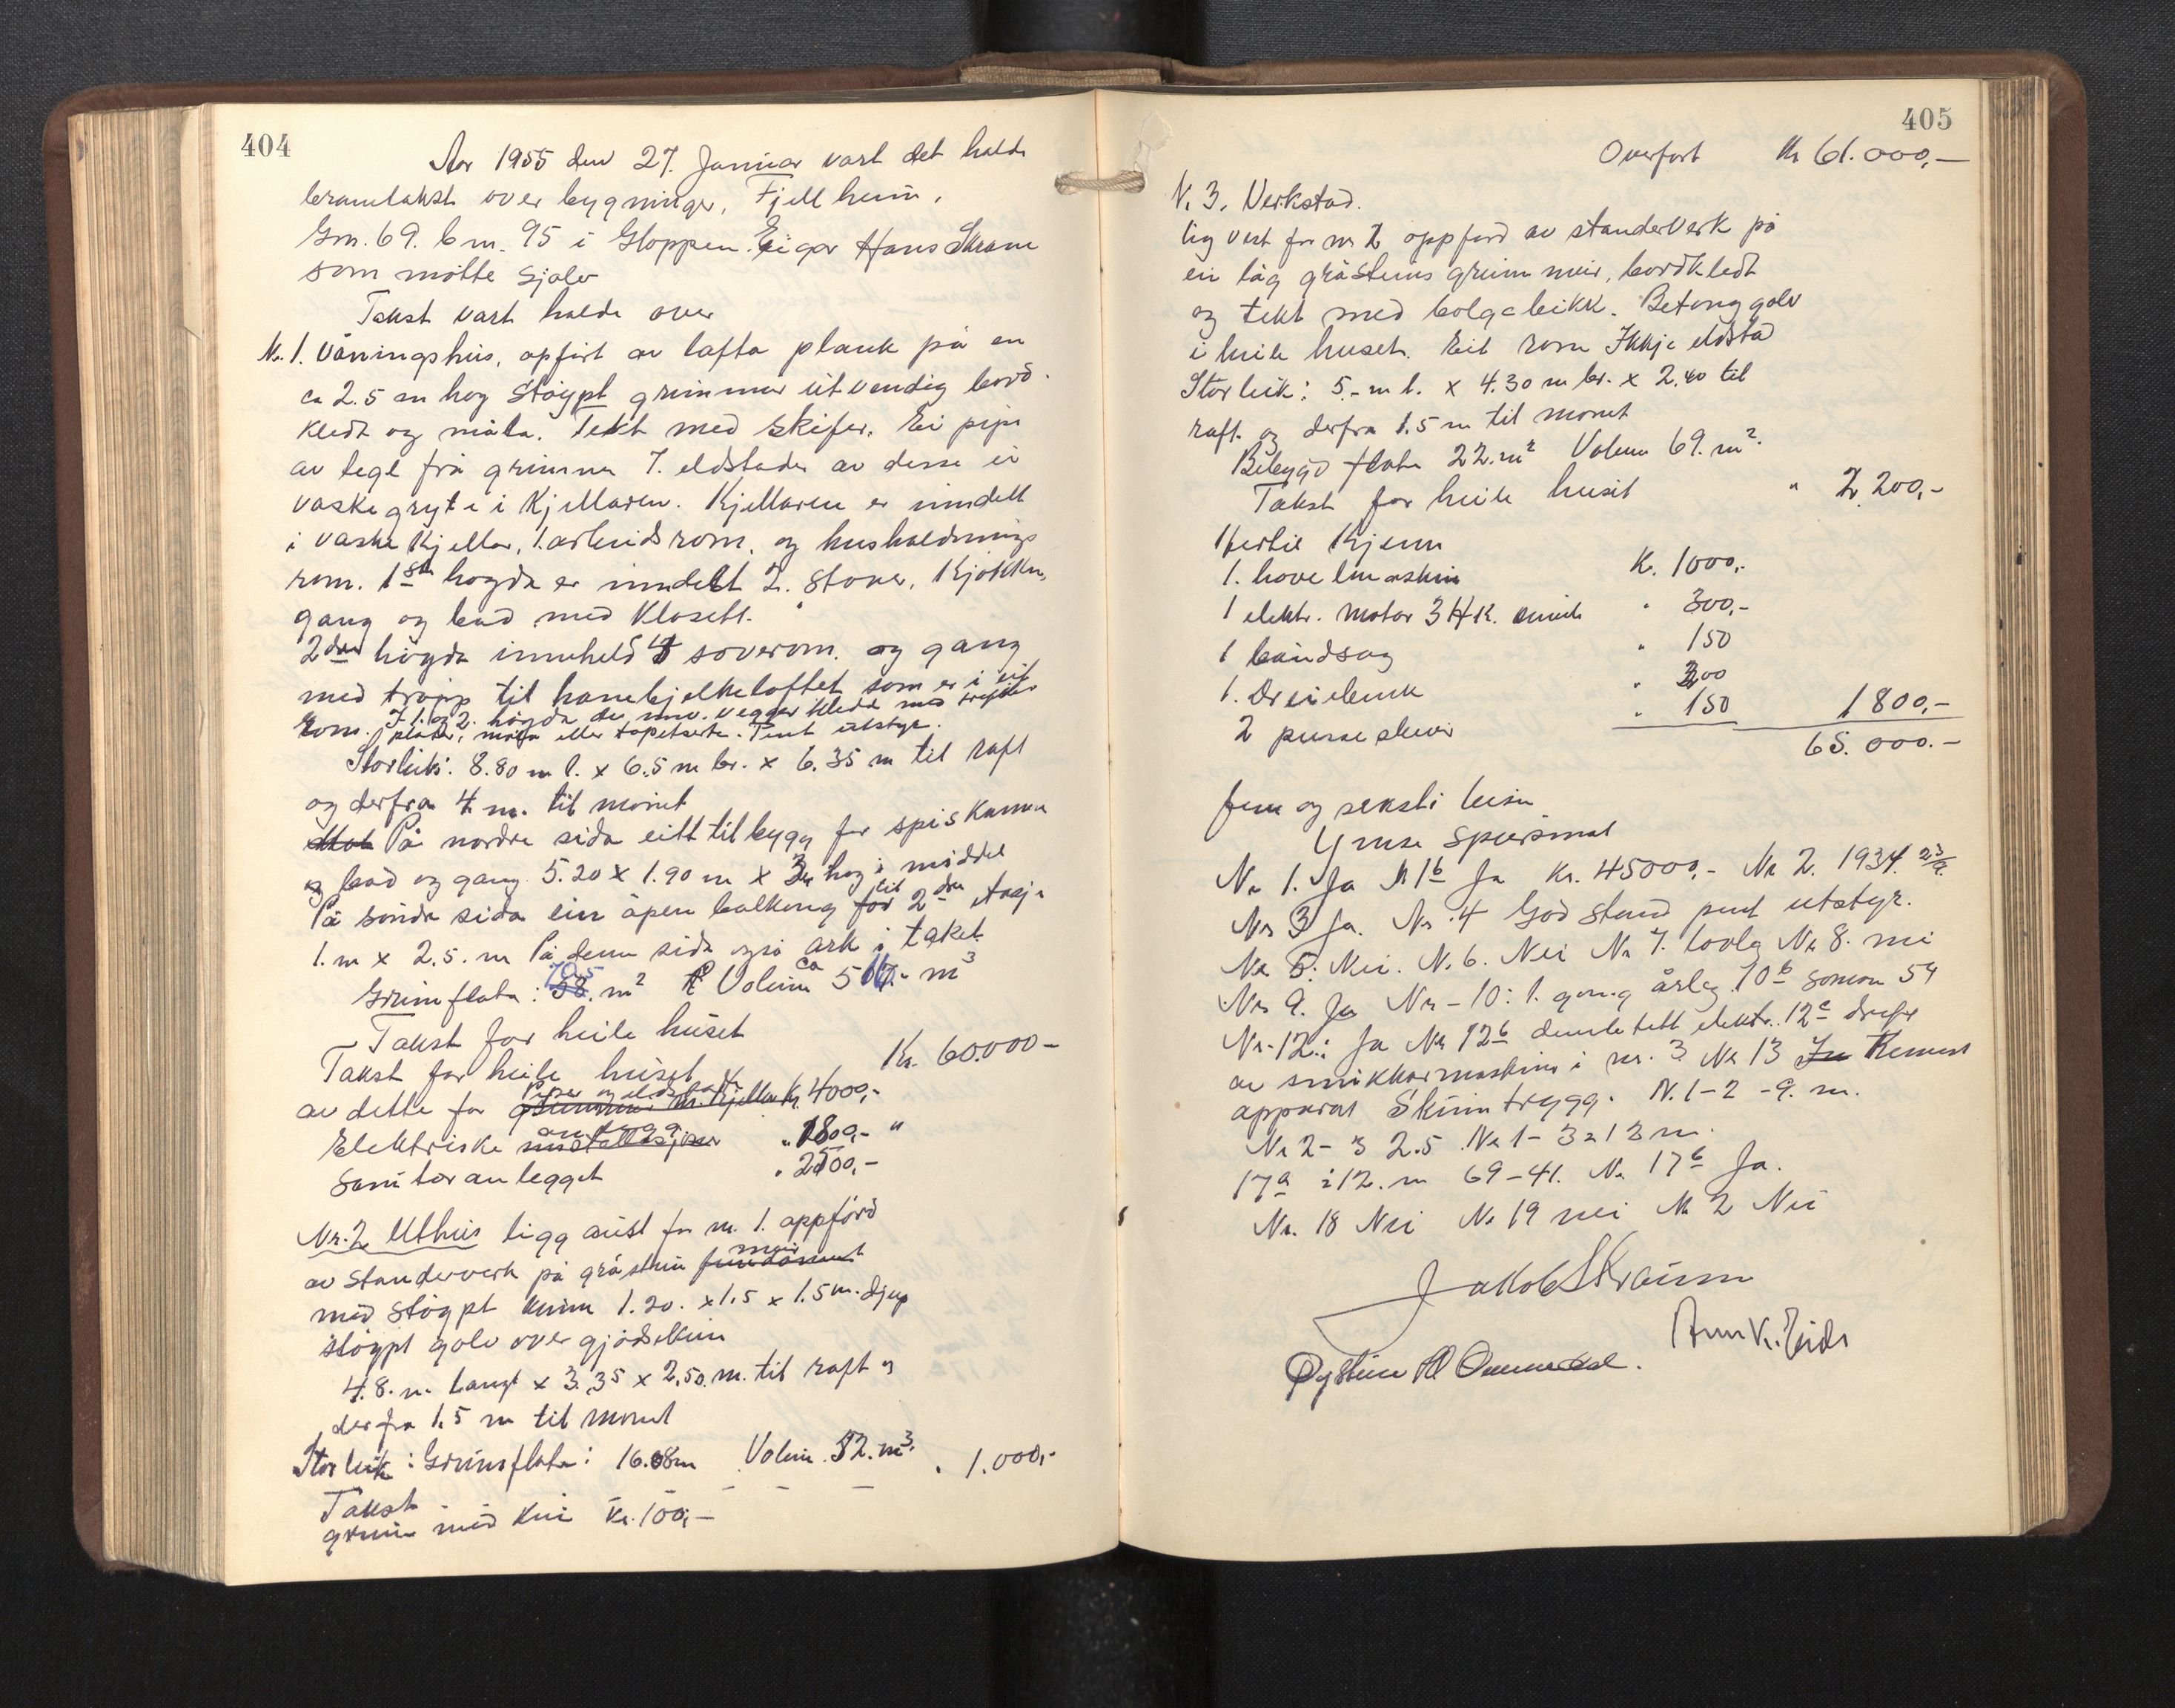 404
Aar 1955 den 27. Januar vart det halde
branntakst over bygninger, Fjellheim,
Gnr. 69. bnr. 95 i Gloppen. Eigar Hans Skraue
som møtte sjølv
Takst vart halde over
Nr. 1. Våningshus, opfört av lafta plank på en
ca 2.5 m hog stöypt grunmur utvendig bord-
kledt og måla. Tekt med skifer. Ei pipe
av tegl frå grunnen 7. eldstader av desse ei
vaskegryte i kjellaren. Kjellaren er inndelt
i vaskekjellar, 1. arbeidsrom, og husholdnings
rom. 1ste hogda er inndelt 2. stover, Kjøkken,
gang og bad med klosett.
2dre högda inneheld 4 soverom. og gang
med tropp til hanebjelkeloftet som er i eit
rom. I 1. og 2. högda er innv. vegger kledd med trefiber
plater, måla eller tapetserte. Pent utstyr.
Storleik: 8.80 m l. x 6.5 m br. x 6.35 m til raft
og derfra 4 m. til mönet
På nordre sida eitt tilbygg for spiskammer
og bad og gang 5.20 x 1.90 m x 3 m hog i middel
På söndre sida ein åpen balkong for til 2dre etasje
1. m x 2.5. m På denne sida også ark i taket
Grunflata: 58. 70.5 m² Volum ca 517.- m³
Takst for heile huset
Takst for heile huset Kr. 60.000-
av dette for grunnmur m. kjellar Piper og eldstader Kr. 4000,-
Elektriske installasjoner anlegg " 1800,- "
Sanitæranlegget " 2500,-
Nr. 2 Uthus ligg aust for nr. 1. oppförd
av standerverk på gråstein fundament mur
med stöypt kum 1.20. x 1.5 x 1.5 m. djup
stöypt golv over gjödselkum
4.8. m. langt x 3.35 x 2.50. m. til raft og
derfra 1.5 m til mönet
Storleik: Grunnflata: 16.08 m Volum 52. m³.
Takst " 1.000,-
grunn med kum Kr. 100,-
405
Overfört Kr 61.000,-
N. 3. Verkstad.
lig vest for nr 2 oppförd av standerverk på
ein låg gråsteins grunnmur, bordkledt
og tekt med bolgeblikk. Betonggolv
i heile huset. Eit rom Ikkje eldstad
Storleik: 5.- m l. x 4.30 m br. x 2.40 til
raft og derfra 1.5 m til mönet
Bebygd flate 22. m² Volum 69. m².
Takst for heile huset " 2.200,-
1. hovelmaskin Kr. 1000,-
1 elektr. motor 3 HK. " 300,-
1 bandsag " 150
1. Dreiebenk " 200
2 pusseskiver " 150 1800,-
65.000.-
fem og seksti tusen
Ymse spursmål
Nr 1. Ja Nr 1b Ja Kr. 45000,- Nr 2. 1934. 23/9.
Nr 3 Ja. Nr. 4 God stand pent utstyr.
Nr 5: Nei. N. 6. Nei Nr 7. lovleg Nr 8. nei
Nr 9. Ja Nr - 10: 1. gong årleg. 10b somon 54
Nr. 12.: Ja Nr 12b elektr. 12c
av snikkarmaskin i nr. 3 Nr 13 Ja
apparat Skum trygg. N. 1-2 - 9. m.
Nr 2 - 3 2.5 Nr 1 - 3 = 13 m.
17a : 12. m 69-41. Nr 17b Ja.
Nr. 18 Nei Nr 19 nei Nr 2 Nei
Jakob Skraum